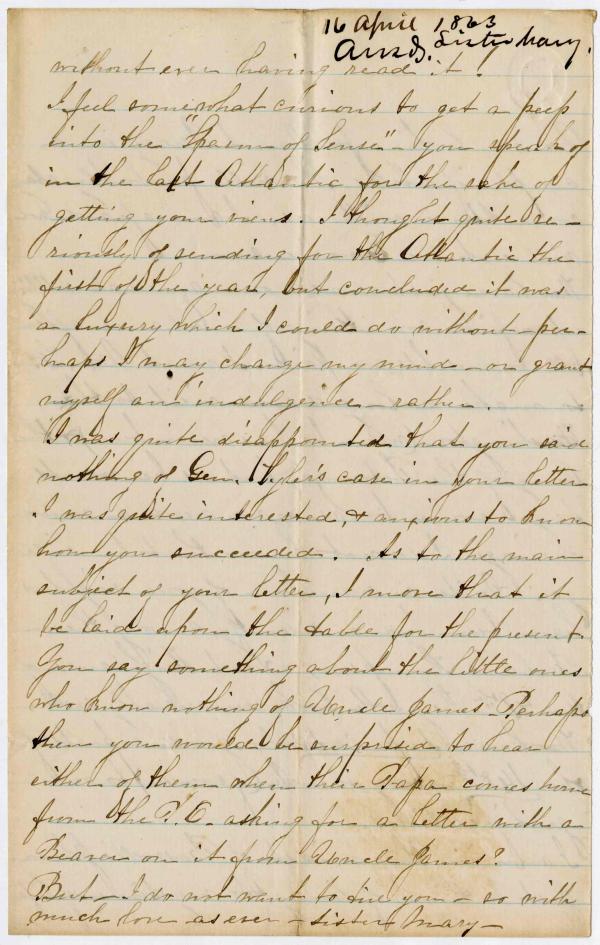 16 April 1863
Ansd. Sister Mary.
without ever having read it!
I feel somewhat curious to get a peep
into the "Spasm of Sense" - you speak of
in the last Atlantic for the sake of
getting your views. I thought quite se-
riously of sending for the Atlantic the
first of the year, but concluded it was
a luxury which I could do without - per-
haps I may change my mind - or grant
myself an indulgence - rather.
I was quite disappointed that you said
nothing of Gen. Tyler's case in your letter
I was quite interested, & anxious to know
how you succeeded. As to the main
subject of your letter, I move that it
be laid upon the table for the present.
You say something about the little ones
who know nothing of Uncle James - Perhaps
then you would be surprised to hear
either of them when their Papa comes home
from the P.O. asking for a letter with a
Beaver on it from Uncle James?
But - I do not want to tire you - so with
much love as ever - sister Mary -